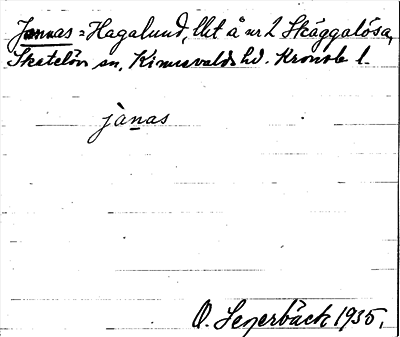 Jannas = Hagalund, llt å nr 2 Skäggalösa,
Skatelöv sn, Kinnevalds hd. Kronob l.
jànas
O. Segerbäck 1935.